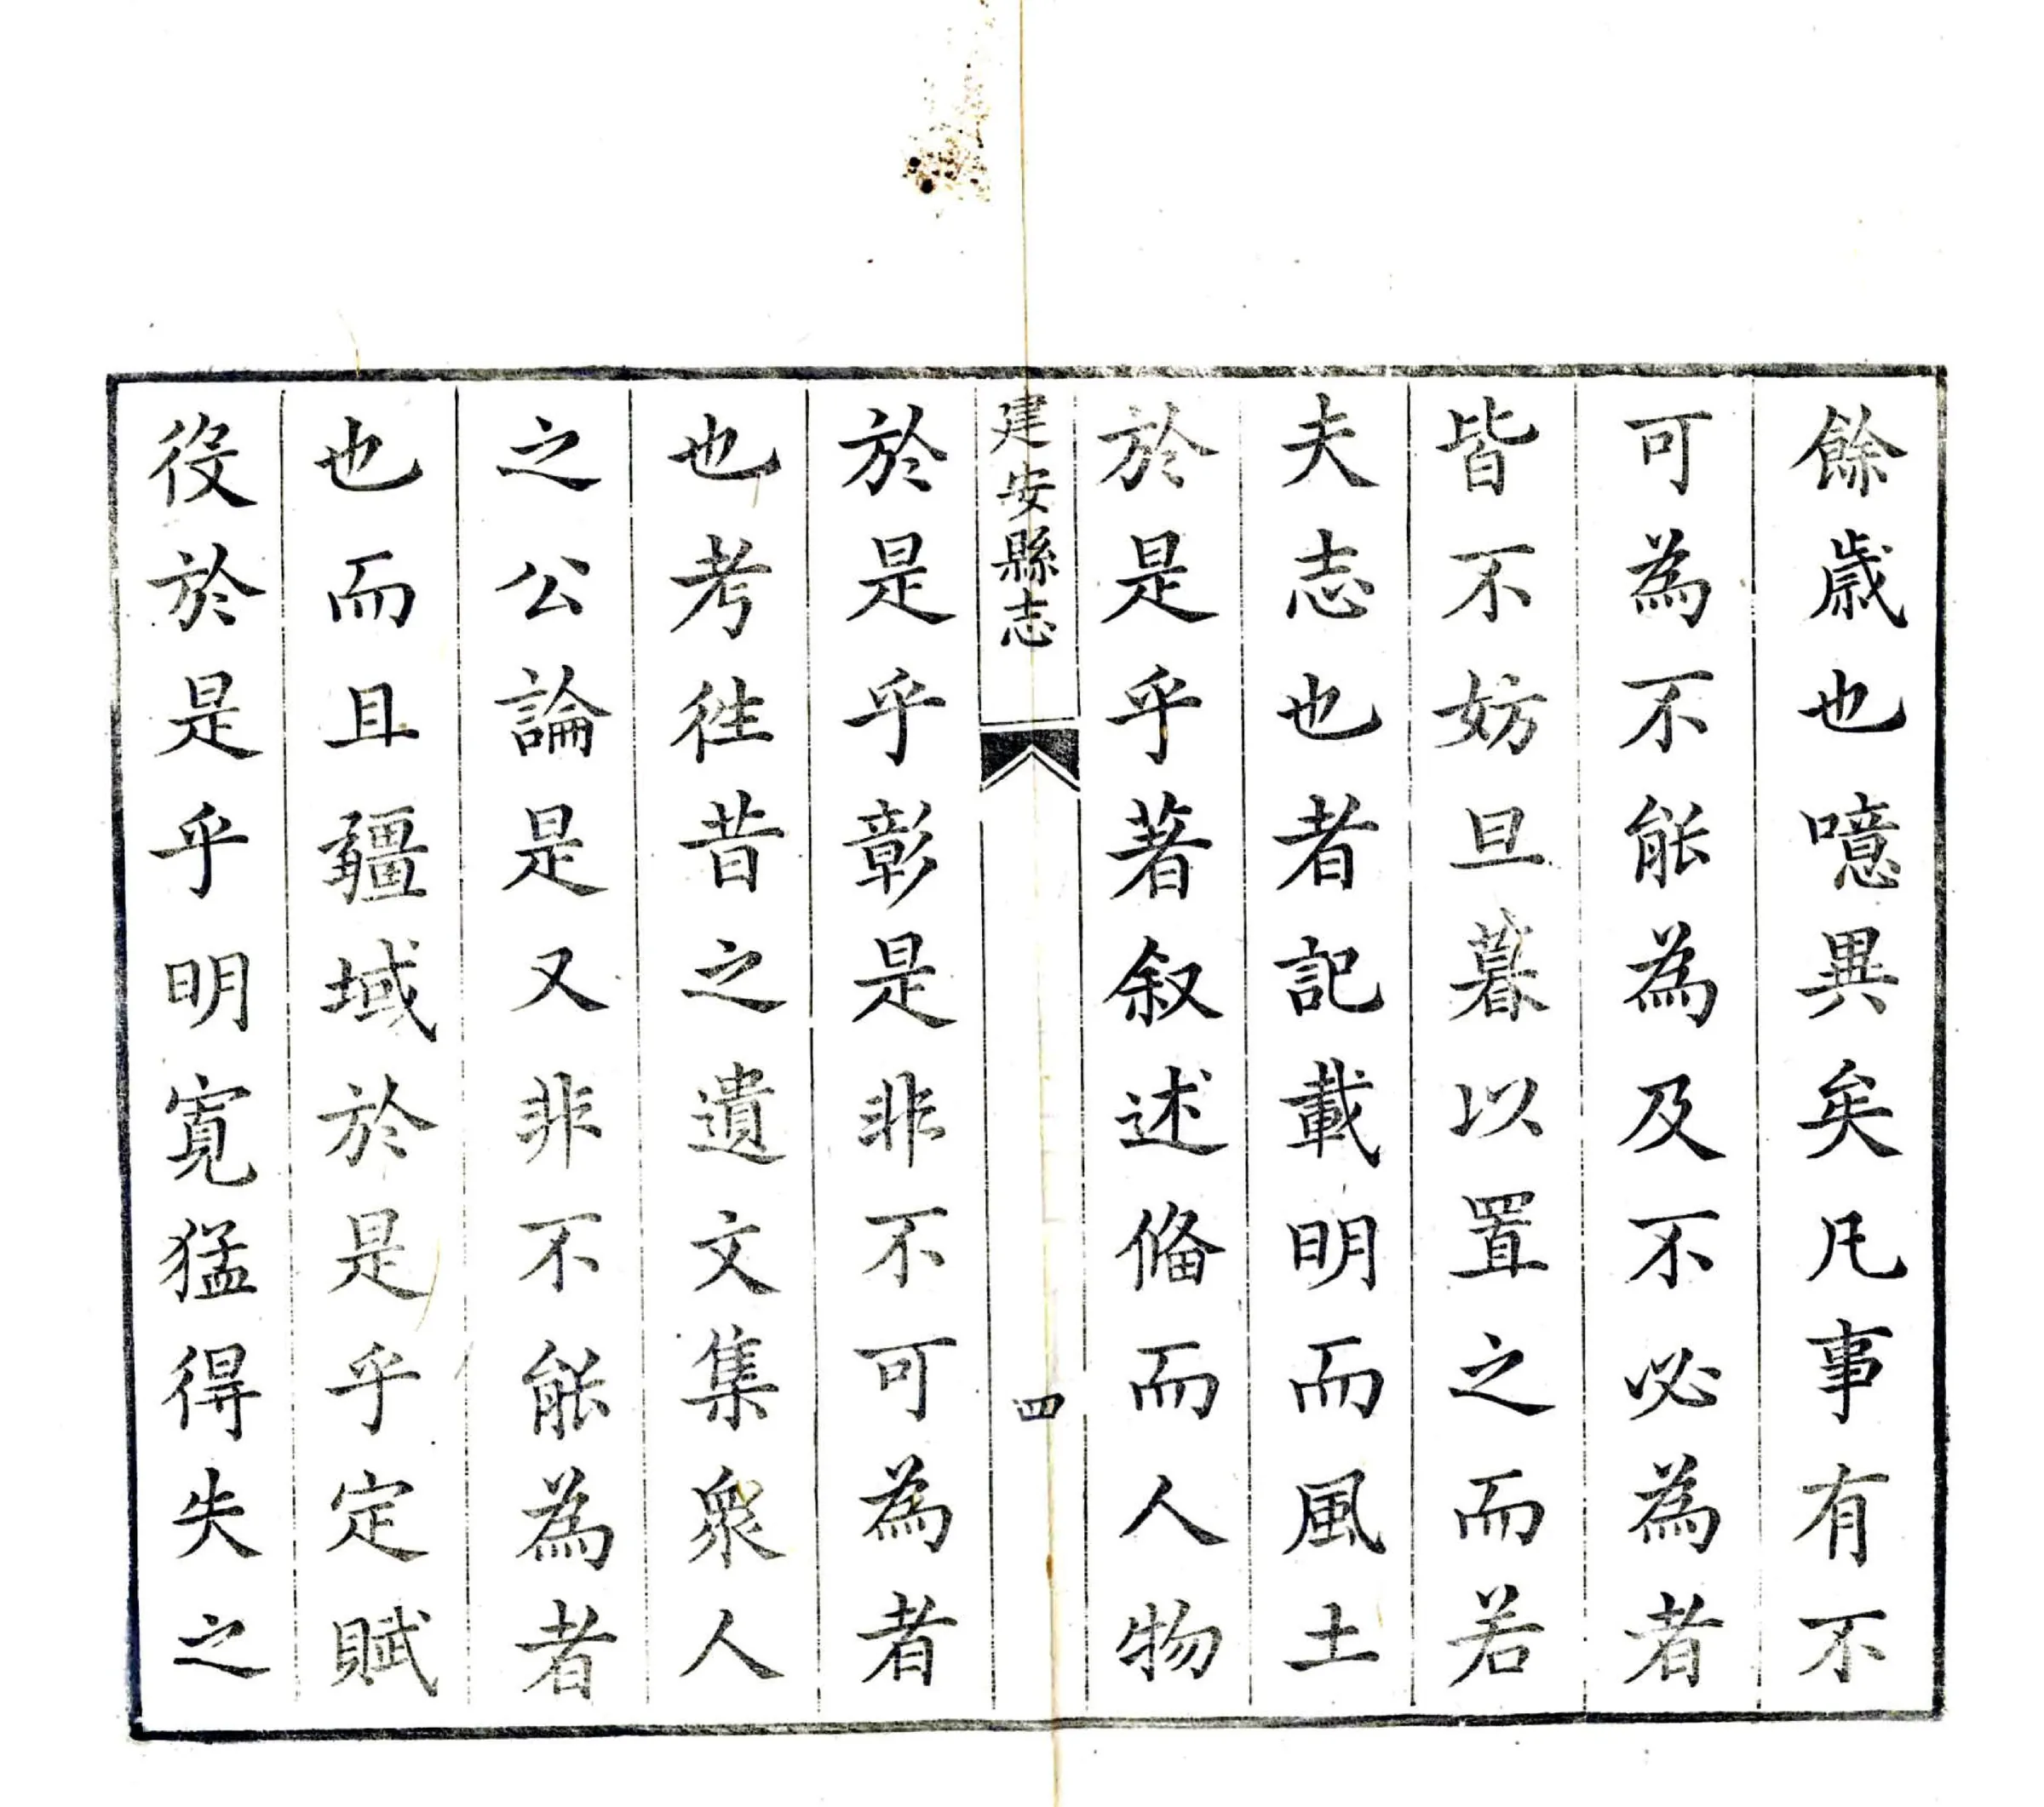 餘歲也噫異矣凡事有不
可為不能為及不必為者
皆不妨旦暮以置之而若
夫志也者記載明而風土
於是乎著叙述俻而人物
建安縣志
四
於是乎彰是非不可為者
也考徃昔之遺文集衆人
之公論是又非不能為者
也而且疆域於是乎定賦
役於是乎明寬猛得失之